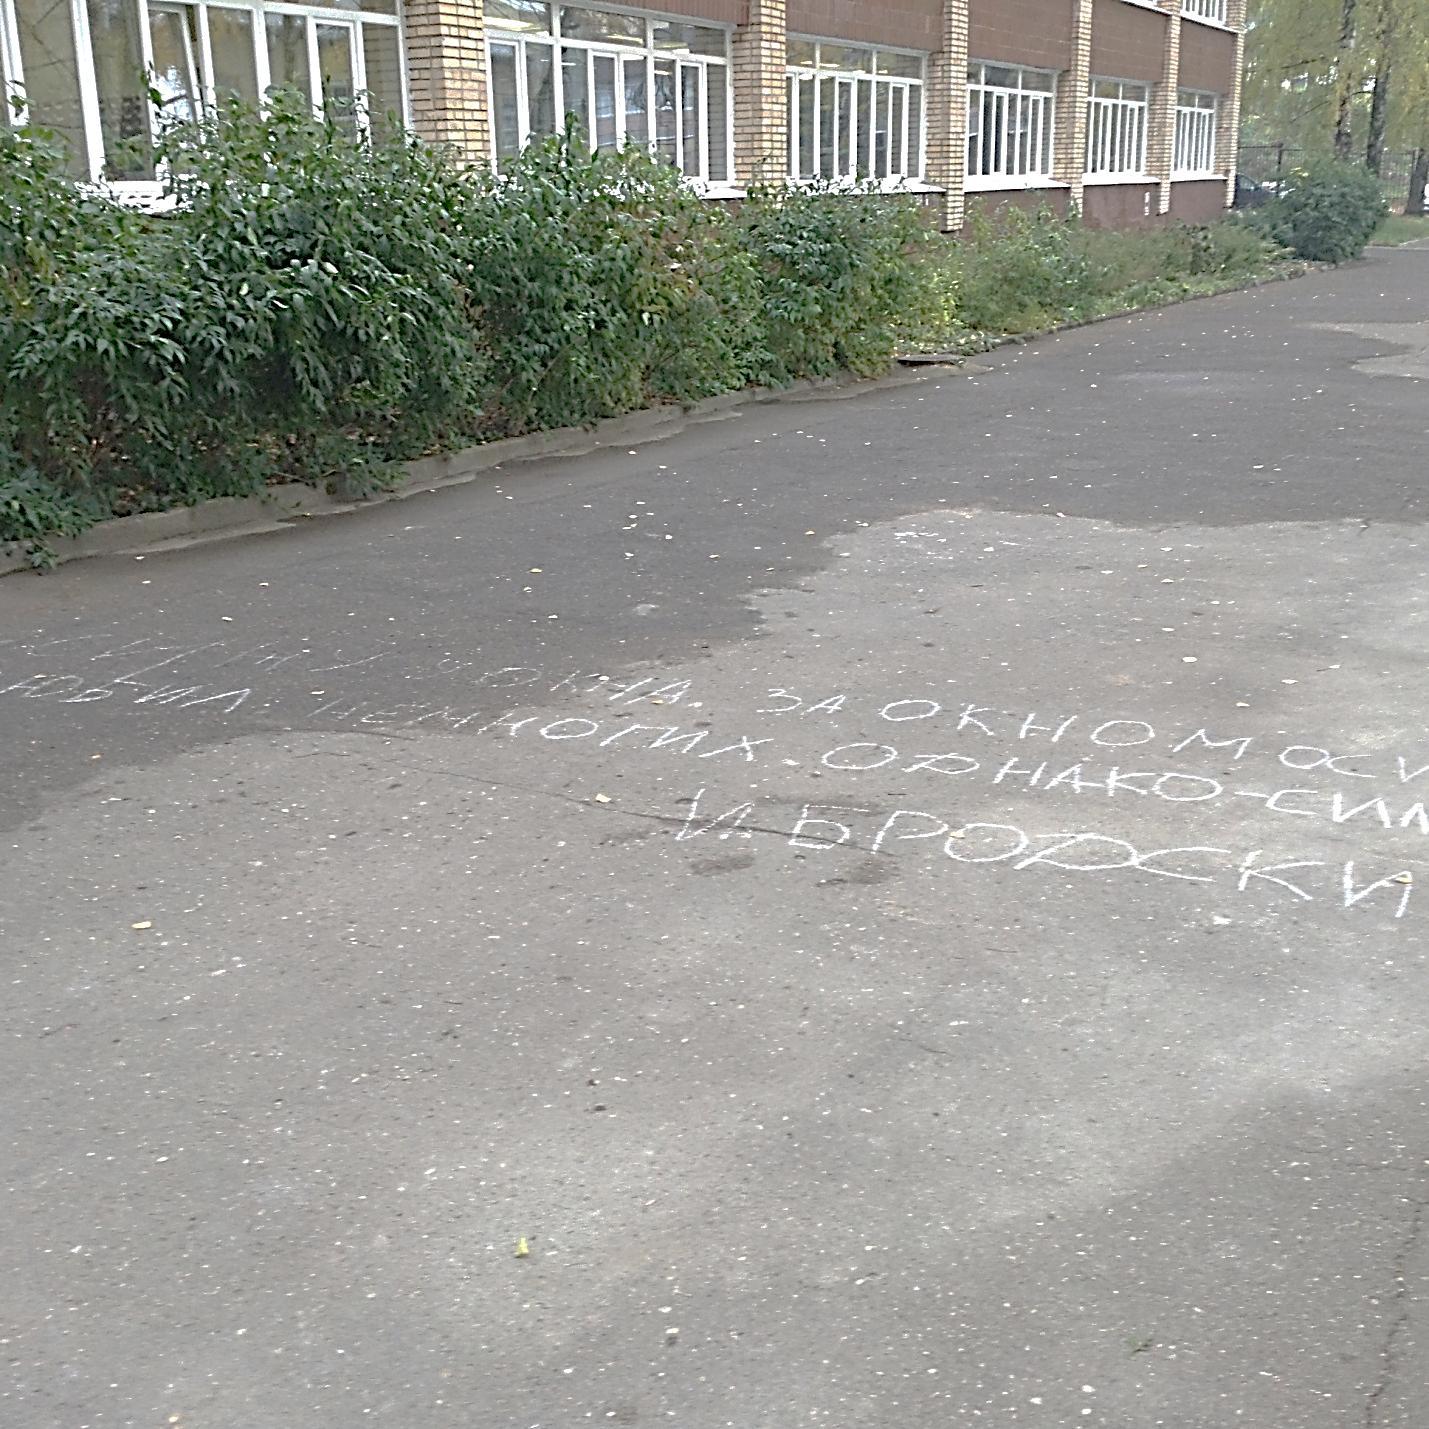 СИЖУ У ОКНА. ЗА ОКНОМ ОСИ
ЮБИЛ НЕМНОГИХ. ОДНАКО-СИЛ
И БРОДСКИ